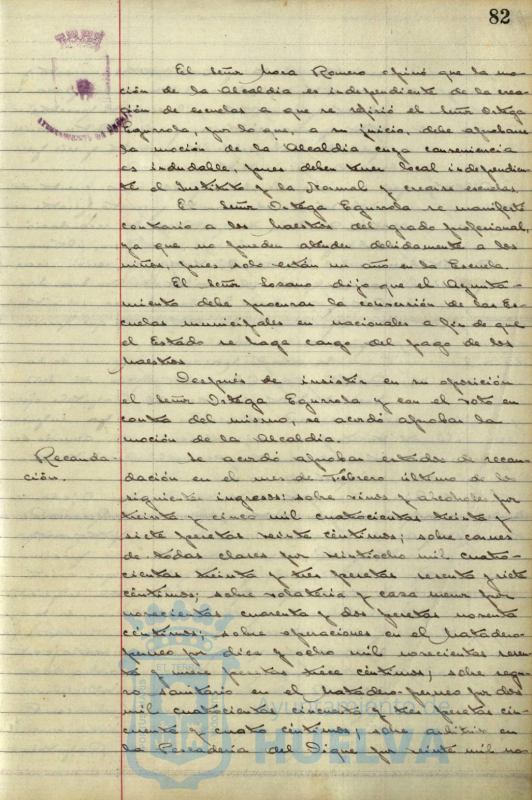 82
El señor Mora Romero opinó que la mo-
ción de la Alcaldia es independiente de la crea-
ción de escuelas a que se refirió el señor Ortega
Egurrola, por lo que, a su juicio, debe aprobarse
la moción de la Alcaldia cuya conveniencia
es indudable, pues deben tener local independien-
te el Instituto y la Normal y crearse escuelas.
El señor Ortega Egurrola se manifestó
contrario a los Maestros del grado profesional,
ya que no pueden atender debidamente a los
niños, pues solo están un año en la Escuela.
El señor Lozano dijo que el Ayunta-
miento debe procurar la conversión de las Es-
cuelas municipales en nacionales a fin de que
el Estado se haga cargo del pago de los
Maestros
Después de insistir en su oposición
el señor Ortega Egurrola y con el voto en
contra del mismo, se acordó aprobar la
moción de la Alcaldia.
Recauda-
ción.
Se acordó aprobar estado de recau-
dación en el mes de Febrero último de los
siguientes ingresos: sobre vinos y alcoholes por
treinta y cinco mil cuatrocientas treinta y
siete pesetas veinte céntimos; sobre carnes
de todas clases por veintiocho mil cuatro-
cientas treinta y tres pesetas setenta y siete
céntimos; sobre volateria y caza menor por
novecientas cuarenta y dos pesetas noventa
céntimos; sobre operaciones en el Matadero-
porcino por diez y ocho mil novecientas
y nueve pesetas trece céntimos; sobre segu-
ro sanitario en el Matadero por dos
mil cuatrocientas cincuenta y tres pesetas cin-
cuenta y cuatro céntimos; sobre arbitrio en
la Pescaderia del Dique por veinte mil no-
Ayuntamiento de
HUELVA